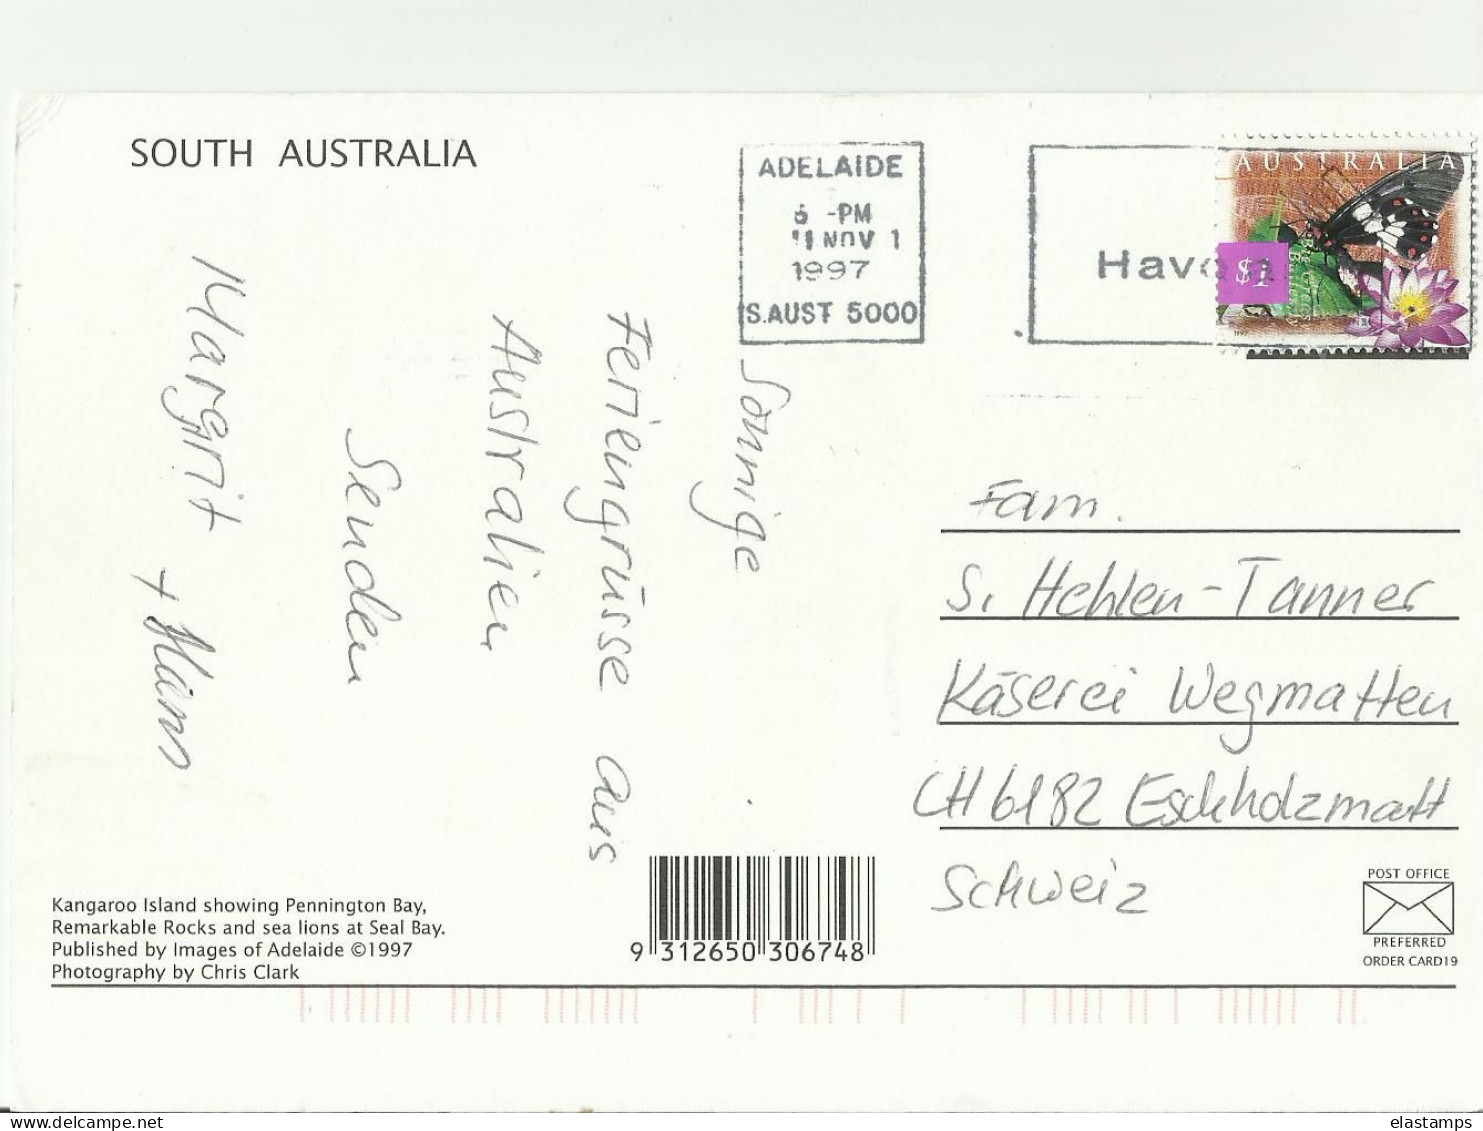 SOUTH AUSTRALIA
Sonnige
Feriengrüsse aus
Australien
Senden
Margrit + Hans
Kangaroo Island showing Pennington Bay,
Remarkable Rocks and sea lions at Seal Bay.
Published by Images of Adelaide ©1997
Photography by Chris Clark
9 312650 306748
ADELAIDE
6 -PM
NOV 1
1997
S.AUST 5000
AUSTRALIA
$1
1997
Fam.
S. Hehlen-Tanner
Käserei Wegmatten
CH 6182 Escholzmatt
Schweiz
POST OFFICE
PREFERRED
ORDER CARD19
elastamps